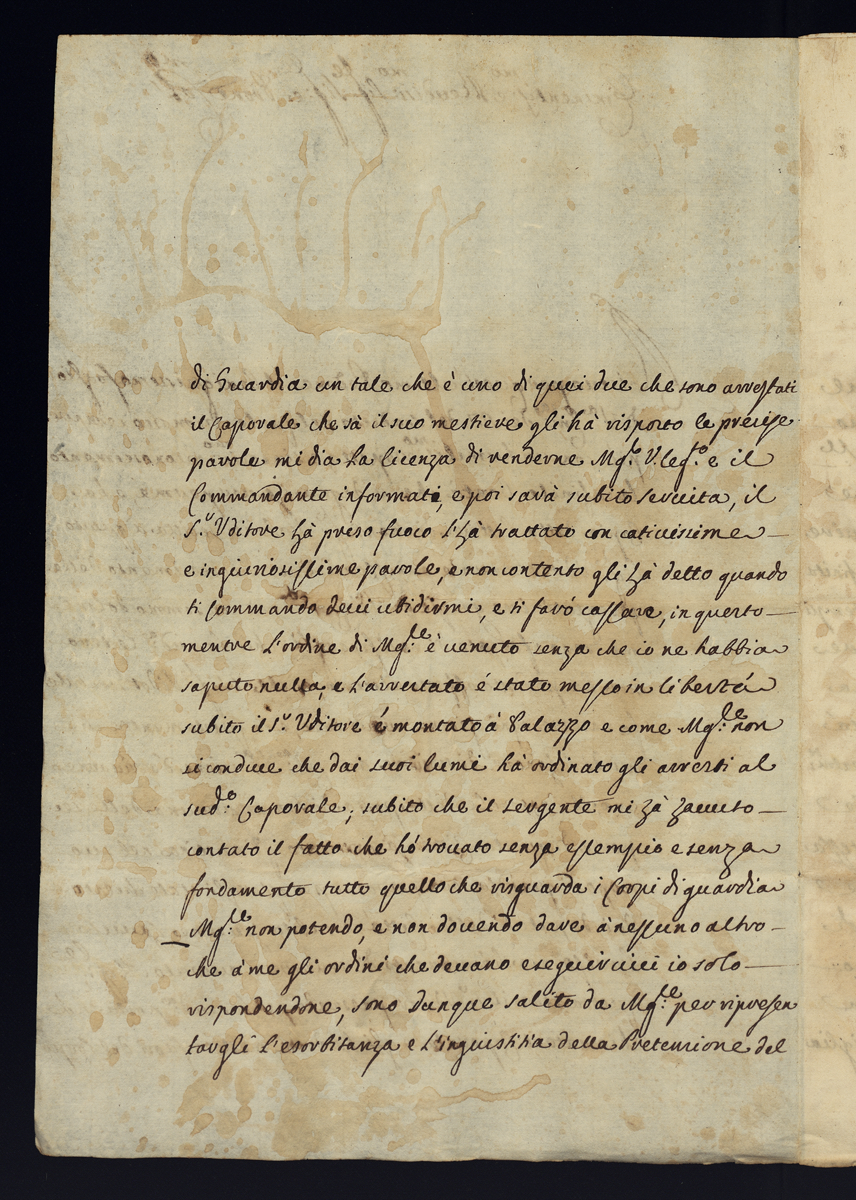 di Guardia un tale che è uno di quei due che sono arrestati
il Caporale che sà il suo mestiere gli hà risposto le precise
parole mi dia la licenza di renderne Mg.r V.Leg.o e il
Commandante informati, e poi sarà subito servita, il
S.r Uditore hà preso fuoco l'hà trattato con cativissime
e ingiuriosissime parole, e non contento gli hà detto quando
ti commando devi ubidirmi, e ti faró cassare, in questo
mentre l'ordine di Mg.re è venuto senza che io ne habbia
saputo nulla, e l'arrestato é stato messo in libertá
subito il S.r Uditore é montato à Palazzo e come Mg.re non
si conduce che dai suoi lumi hà ordinato gli arresti al
sud.o Caporale, subito che il sergente mi hà havuto
contato il fatto che hó trovato senza essempio e senza
fondamento tutto quello che risguarda i Corpi di guardia
Mg.re non potendo, e non dovendo dare à nessuno altro
che à me gli ordini che devano eseguirvici io solo
rispondendone, sono dunque salito da Mg.re per ripresen
targli l'esorbitanza e l'ingiustitia della Pretensione del